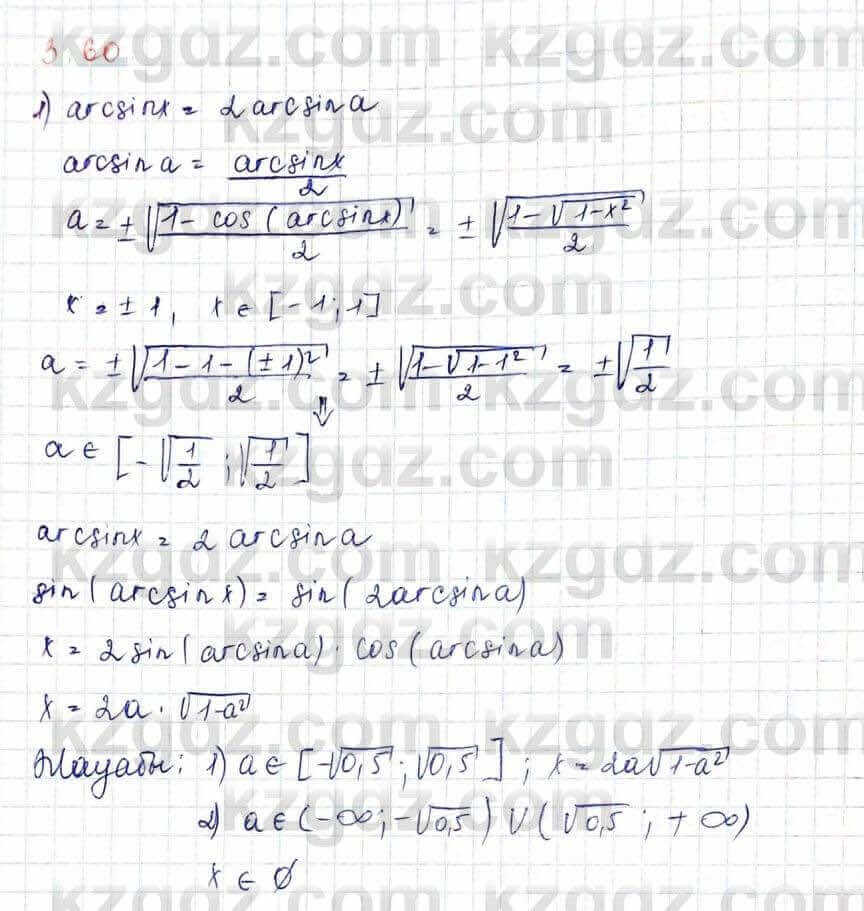 3.60
1) arcsinx = 2 arcsin a
arcsin a = arcsinx / 2
a = ± √((1 - cos (arcsinx)) / 2) = ± √((1 - √(1-x²)) / 2)
x = ± 1, x ∈ [-1; 1]
a = ± √((1 - 1 - (±1)²) / 2) = ± √((1 - √(1-1²)) / 2) = ± √(1/2)
⇓
a ∈ [-√(1/2); √(1/2)]
arcsinx = 2 arcsin a
sin(arcsinx) = sin(2arcsin a)
x = 2sin(arcsin a) · cos(arcsin a)
x = 2a · √(1-a²)
Жауабы: 1) a ∈ [-√0,5; √0,5]; x = 2a√(1-a²)
2) a ∈ (-∞; -√0,5) ∪ (√0,5; +∞)
x ∈ ∅
kzgdz.com